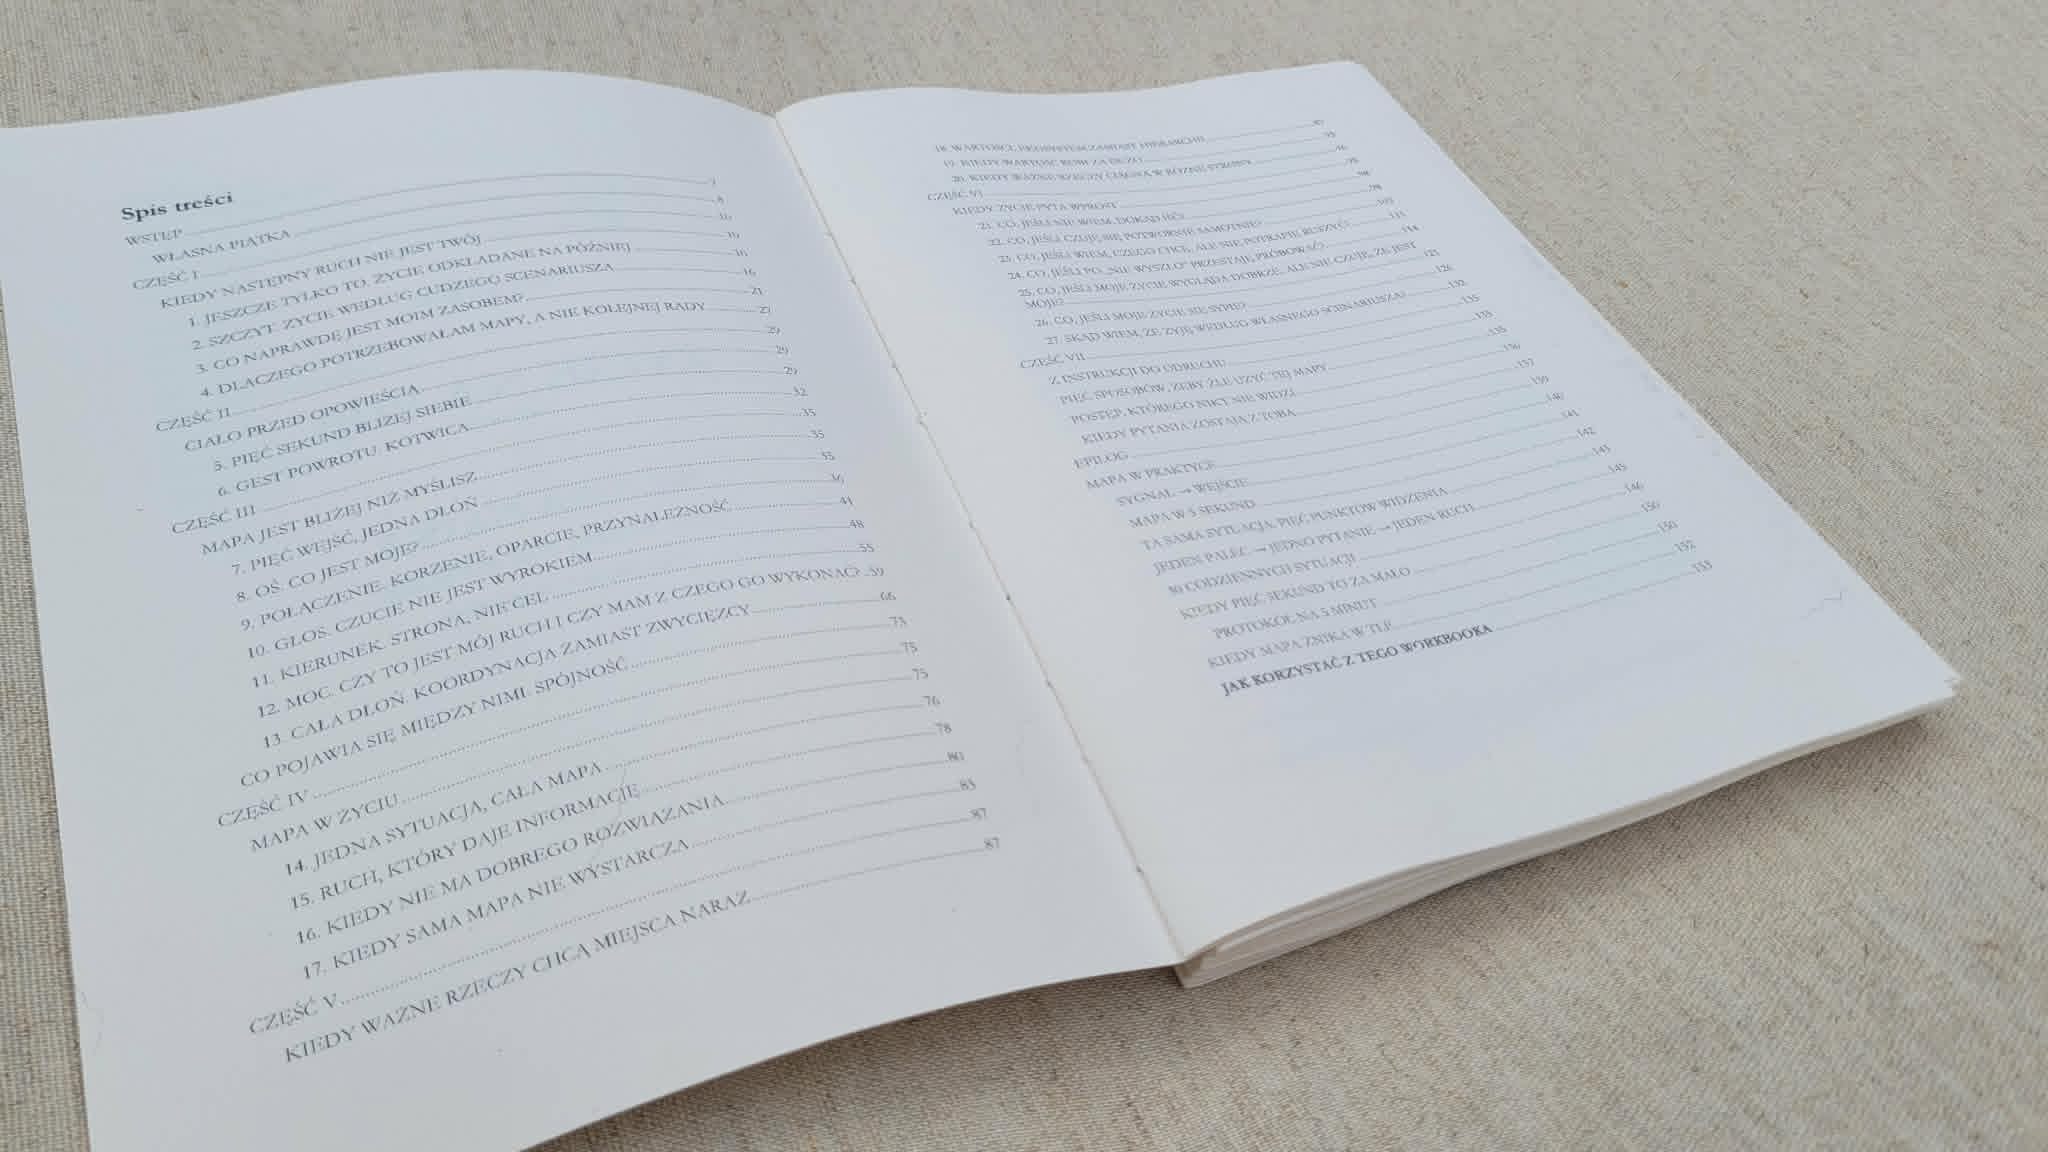 Spis treści
WSTĘP 7
WŁASNA PIĄTKA 8
CZĘŚĆ I 10
KIEDY NASTĘPNY RUCH NIE JEST TWÓJ 10
1. JESZCZE TYLKO TO. ŻYCIE ODKŁADANE NA PÓŹNIEJ 10
2. SZCZYT. ŻYCIE WEDŁUG CUDZEGO SCENARIUSZA 16
3. CO NAPRAWDĘ JEST MOIM ZASOBEM? 21
4. DLACZEGO POTRZEBOWAŁAM MAPY, A NIE KOLEJNEJ RADY 27
CZĘŚĆ II 29
CIAŁO PRZED OPOWIEŚCIĄ 29
5. PIĘĆ SEKUND BLIŻEJ SIEBIE 29
6. GEST POWROTU. KOTWICA 32
CZĘŚĆ III 35
MAPA JEST BLIŻEJ NIŻ MYŚLISZ 35
7. PIĘĆ WEJŚĆ, JEDNA DŁOŃ 35
8. OŚ. CO JEST MOJE? 36
9. POŁĄCZENIE. KORZENIE, OPARCIE, PRZYNALEŻNOŚĆ 41
10. GŁOS. CZUCIE NIE JEST WYROKIEM 48
11. KIERUNEK. STRONA, NIE CEL 55
12. MOC. CZY TO JEST MÓJ RUCH I CZY MAM Z CZEGO GO WYKONAĆ? 59
13. CAŁA DŁOŃ. KOORDYNACJA ZAMIAST ZWYCIĘZCY 66
CO POJAWIA SIĘ MIĘDZY NIMI: SPÓJNOŚĆ 73
CZĘŚĆ IV 75
MAPA W ŻYCIU 75
14. JEDNA SYTUACJA, CAŁA MAPA 76
15. RUCH, KTÓRY DAJE INFORMACJĘ 78
16. KIEDY NIE MA DOBREGO ROZWIĄZANIA 80
17. KIEDY SAMA MAPA NIE WYSTARCZA 83
CZĘŚĆ V 87
KIEDY WAŻNE RZECZY CHCĄ MIEJSCA NARAZ 87
18. WARTOŚCI. EKOSYSTEM ZAMIAST HIERARCHII
19. KIEDY WARTOŚĆ ROBI ZA DUŻO
20. KIEDY WAŻNE RZECZY CIĄGNĄ W RÓŻNE STRONY 96
CZĘŚĆ VI 98
KIEDY ŻYCIE PYTA WPROST 98
21. CO, JEŚLI NIE WIEM, DOKĄD IŚĆ? 98
22. CO, JEŚLI CZUJĘ SIĘ POTWORNIE SAMOTNIE?
23. CO, JEŚLI WIEM, CZEGO CHCĘ, ALE NIE POTRAFIĘ RUSZYĆ? 111
24. CO, JEŚLI PO „NIE WYSZŁO” PRZESTAJĘ PRÓBOWAĆ? 114
25. CO, JEŚLI MOJE ŻYCIE WYGLĄDA DOBRZE, ALE NIE CZUJĘ, ŻE JEST
MOJE? 121
26. CO, JEŚLI MOJE ŻYCIE SIĘ SYPIE? 126
27. SKĄD WIEM, ŻE ŻYJĘ WEDŁUG WŁASNEGO SCENARIUSZA? 132
CZĘŚĆ VII 135
Z INSTRUKCJI DO ODRUCHU 135
PIĘĆ SPOSOBÓW, ŻEBY ŹLE UŻYĆ TEJ MAPY 135
POSTĘP, KTÓREGO NIKT NIE WIDZI 136
KIEDY PYTANIA ZOSTAJĄ Z TOBĄ 137
EPILOG 139
MAPA W PRAKTYCE 140
SYGNAŁ → WEJŚCIE 141
MAPA W 5 SEKUND 142
TA SAMA SYTUACJA, PIĘĆ PUNKTÓW WIDZENIA 143
JEDEN PALEC → JEDNO PYTANIE → JEDEN RUCH 145
80 CODZIENNYCH SYTUACJI 146
KIEDY PIĘĆ SEKUND TO ZA MAŁO 150
PROTOKÓŁ NA 5 MINUT 150
KIEDY MAPA ZNIKA W TLE 152
JAK KORZYSTAĆ Z TEGO WORKBOOKA 153